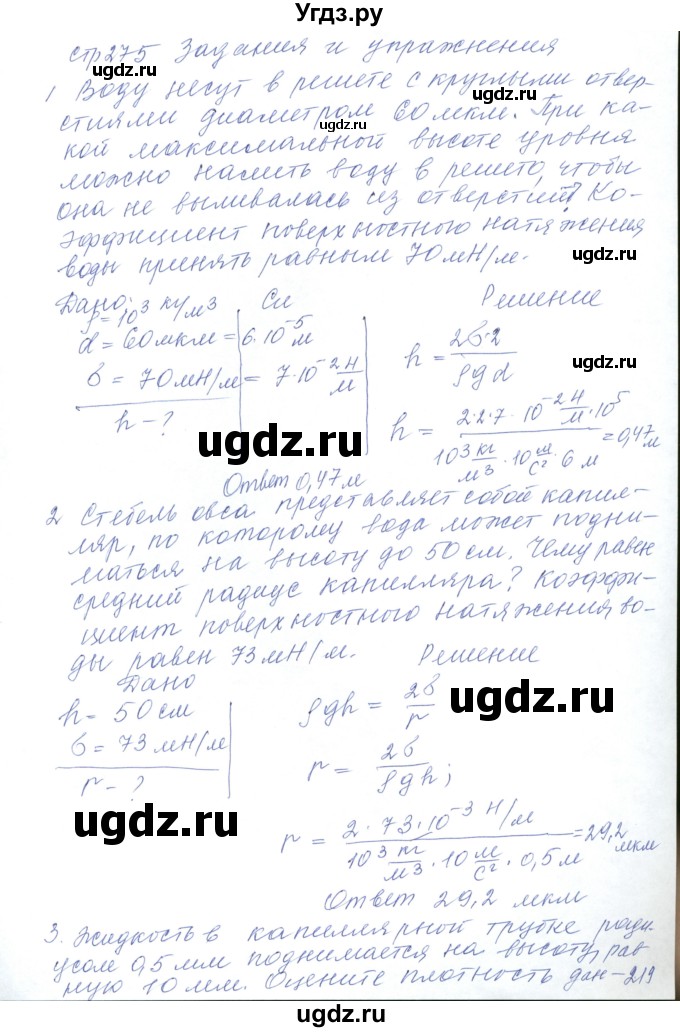 Угдз.ру
стр 275 Задания и упражнения
1 Воду несут в решете с круглыми отвер-
стиями диаметром 60 мкм. При ка-
кой максимальной высоте уровня
можно налить воду в решето, чтобы
она не выливалась из отверстий? Ко-
эффициент поверхностного натяжения
воды принять равным 70 мН/м.
Дано: Си Решение
ρ = 10³ кг/м³
d = 60 мкм = 6·10⁻⁵ м
σ = 70 мН/м = 7·10⁻² Н/м
h - ?
h = 2σ·2 / ρgd
h = 2·2·7·10⁻² Н/м · 10⁵ / 10³ кг/м³ · 10 м/с² · 6 м = 0,47 м
Ответ 0,47 м
2 Стебель овса представляет собой капил-
ляр, по которому вода может подни-
маться на высоту до 50 см. Чему равен
средний радиус капилляра? Коэффи-
циент поверхностного натяжения во-
ды равен 73 мН/м.
Дано Решение
h = 50 см
σ = 73 мН/м
r - ?
ρgh = 2σ / r
r = 2σ / ρgh;
r = 2·73·10⁻³ Н/м / 10³ кг/м³ · 10 м/с² · 0,5 м = 29,2 мкм
Ответ 29,2 мкм
3. Жидкость в капиллярной трубке ради-
усом 0,5 мм поднимается на высоту, рав-
ную 10 мм. Оцените плотность дан- 219
ugdz.ru
ugdz.ru
ugdz.ru
ugdz.ru
ugdz.ru
ugdz.ru
ugdz.ru
ugdz.ru
ugdz.ru
ugdz.ru
ugdz.ru
ugdz.ru